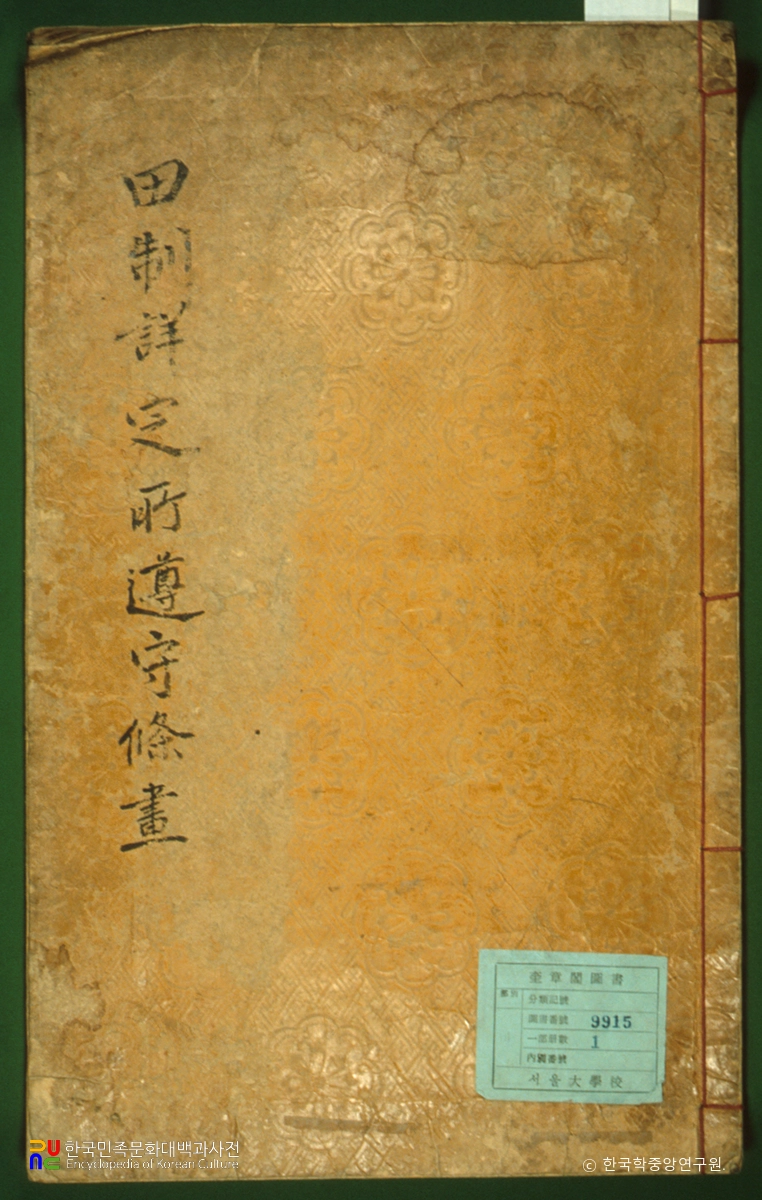 田制詳定所遵守條畫
奎章閣圖書
類別
分類記號
圖書番號 9915
一部冊數 1
內國番號
서울大學校
한국민족문화대백과사전
Encyclopedia of Korean Culture
© 한국학중앙연구원